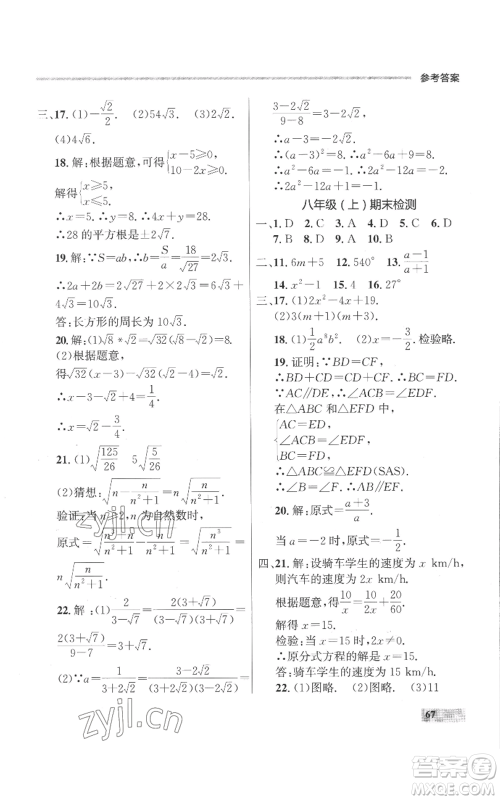 参考答案
三、17. (1)-√2/2. (2)54√3. (3)√2/4.
(4)4√6.
18. 解：根据题意，可得{x-5≥0, 10-2x≥0,
∴{x≥5, x≤5.
∴x=5. ∴x²+a=25+3=28.
∴28的平方根是±2√7.
19. 解：∵S=ab, ∴b=S/a=18/√27=2√3.
∴2a+2b=2√27+2×2√3=10√3.
答：长方形的周长为10√3.
20. 解：(1)√8*√2=8.
(2)根据题意，
得√32(x-√2)=√32/(x+√2).
∴x-√2=1/(x+√2).
∴x=√3或x=-√3.
21. (1)√(125/26) 5√(5/26)
(2)猜想：√(n-n/(n²+1))=n√(n/(n²+1)).
验证：当n≥2，n为自然数时，
原式=√((n³+n)/(n²+1)-n/(n²+1))=√(n³/(n²+1))=
n√(n/(n²+1)).
22. 解：(1)2/(3-√7)=2(3+√7)/((3-√7)(3+√7))=
2(3+√7)/(9-7)=3+√7.
(2)∵a=1/(3+2√2)=(3-2√2)/((3+2√2)(3-2√2))=
(3-2√2)/(9-8)=3-2√2,
∴a-3=-2√2.
∴(a-3)²=8. ∴a²-6a+9=8.
∴a²-6a=-1. ∴2a²-12a=-2.
∴2a²-12a+1=-1.
八年级（上）期末检测
一、1. D 2. C 3. A 4. C 5. C 6. D
7. B 8. B 9. D 10. B
二、11. 6m+5 12. 540° 13. (a-1)/(a+1)
14. x²-1 15. 4 16. 27°
三、17. (1)2x²-4x+19.
(2)3(m+1)(m-1).
18. (1)1/2a⁸b². (2)x=-3/2. 检验略.
19. 证明：∵BD=CF,
∴BD+CD=CF+CD. ∴BC=DF.
∵AC∥DE, ∴∠ACB=∠EDF.
在△ABC和△EFD中，
{AC=ED, ∠ACB=∠EDF, BC=FD,
∴△ACB≌△EDF(SAS).
∴∠B=∠F. ∴AB∥EF.
20. 解：原式=(a+3)/a.
当a=-2时，原式=-1/2.
四、21. 解：设骑车学生的速度为x km/h,
则汽车的速度为2x km/h.
根据题意，得10/x=10/2x+20/60.
解得x=15.
检验：当x=15时，2x≠0.
∴原分式方程的解为x=15.
答：骑车学生的速度为15 km/h.
22. (1)图略. (2)图略. (3)11
67
zyjl.cn
zyjl.cn